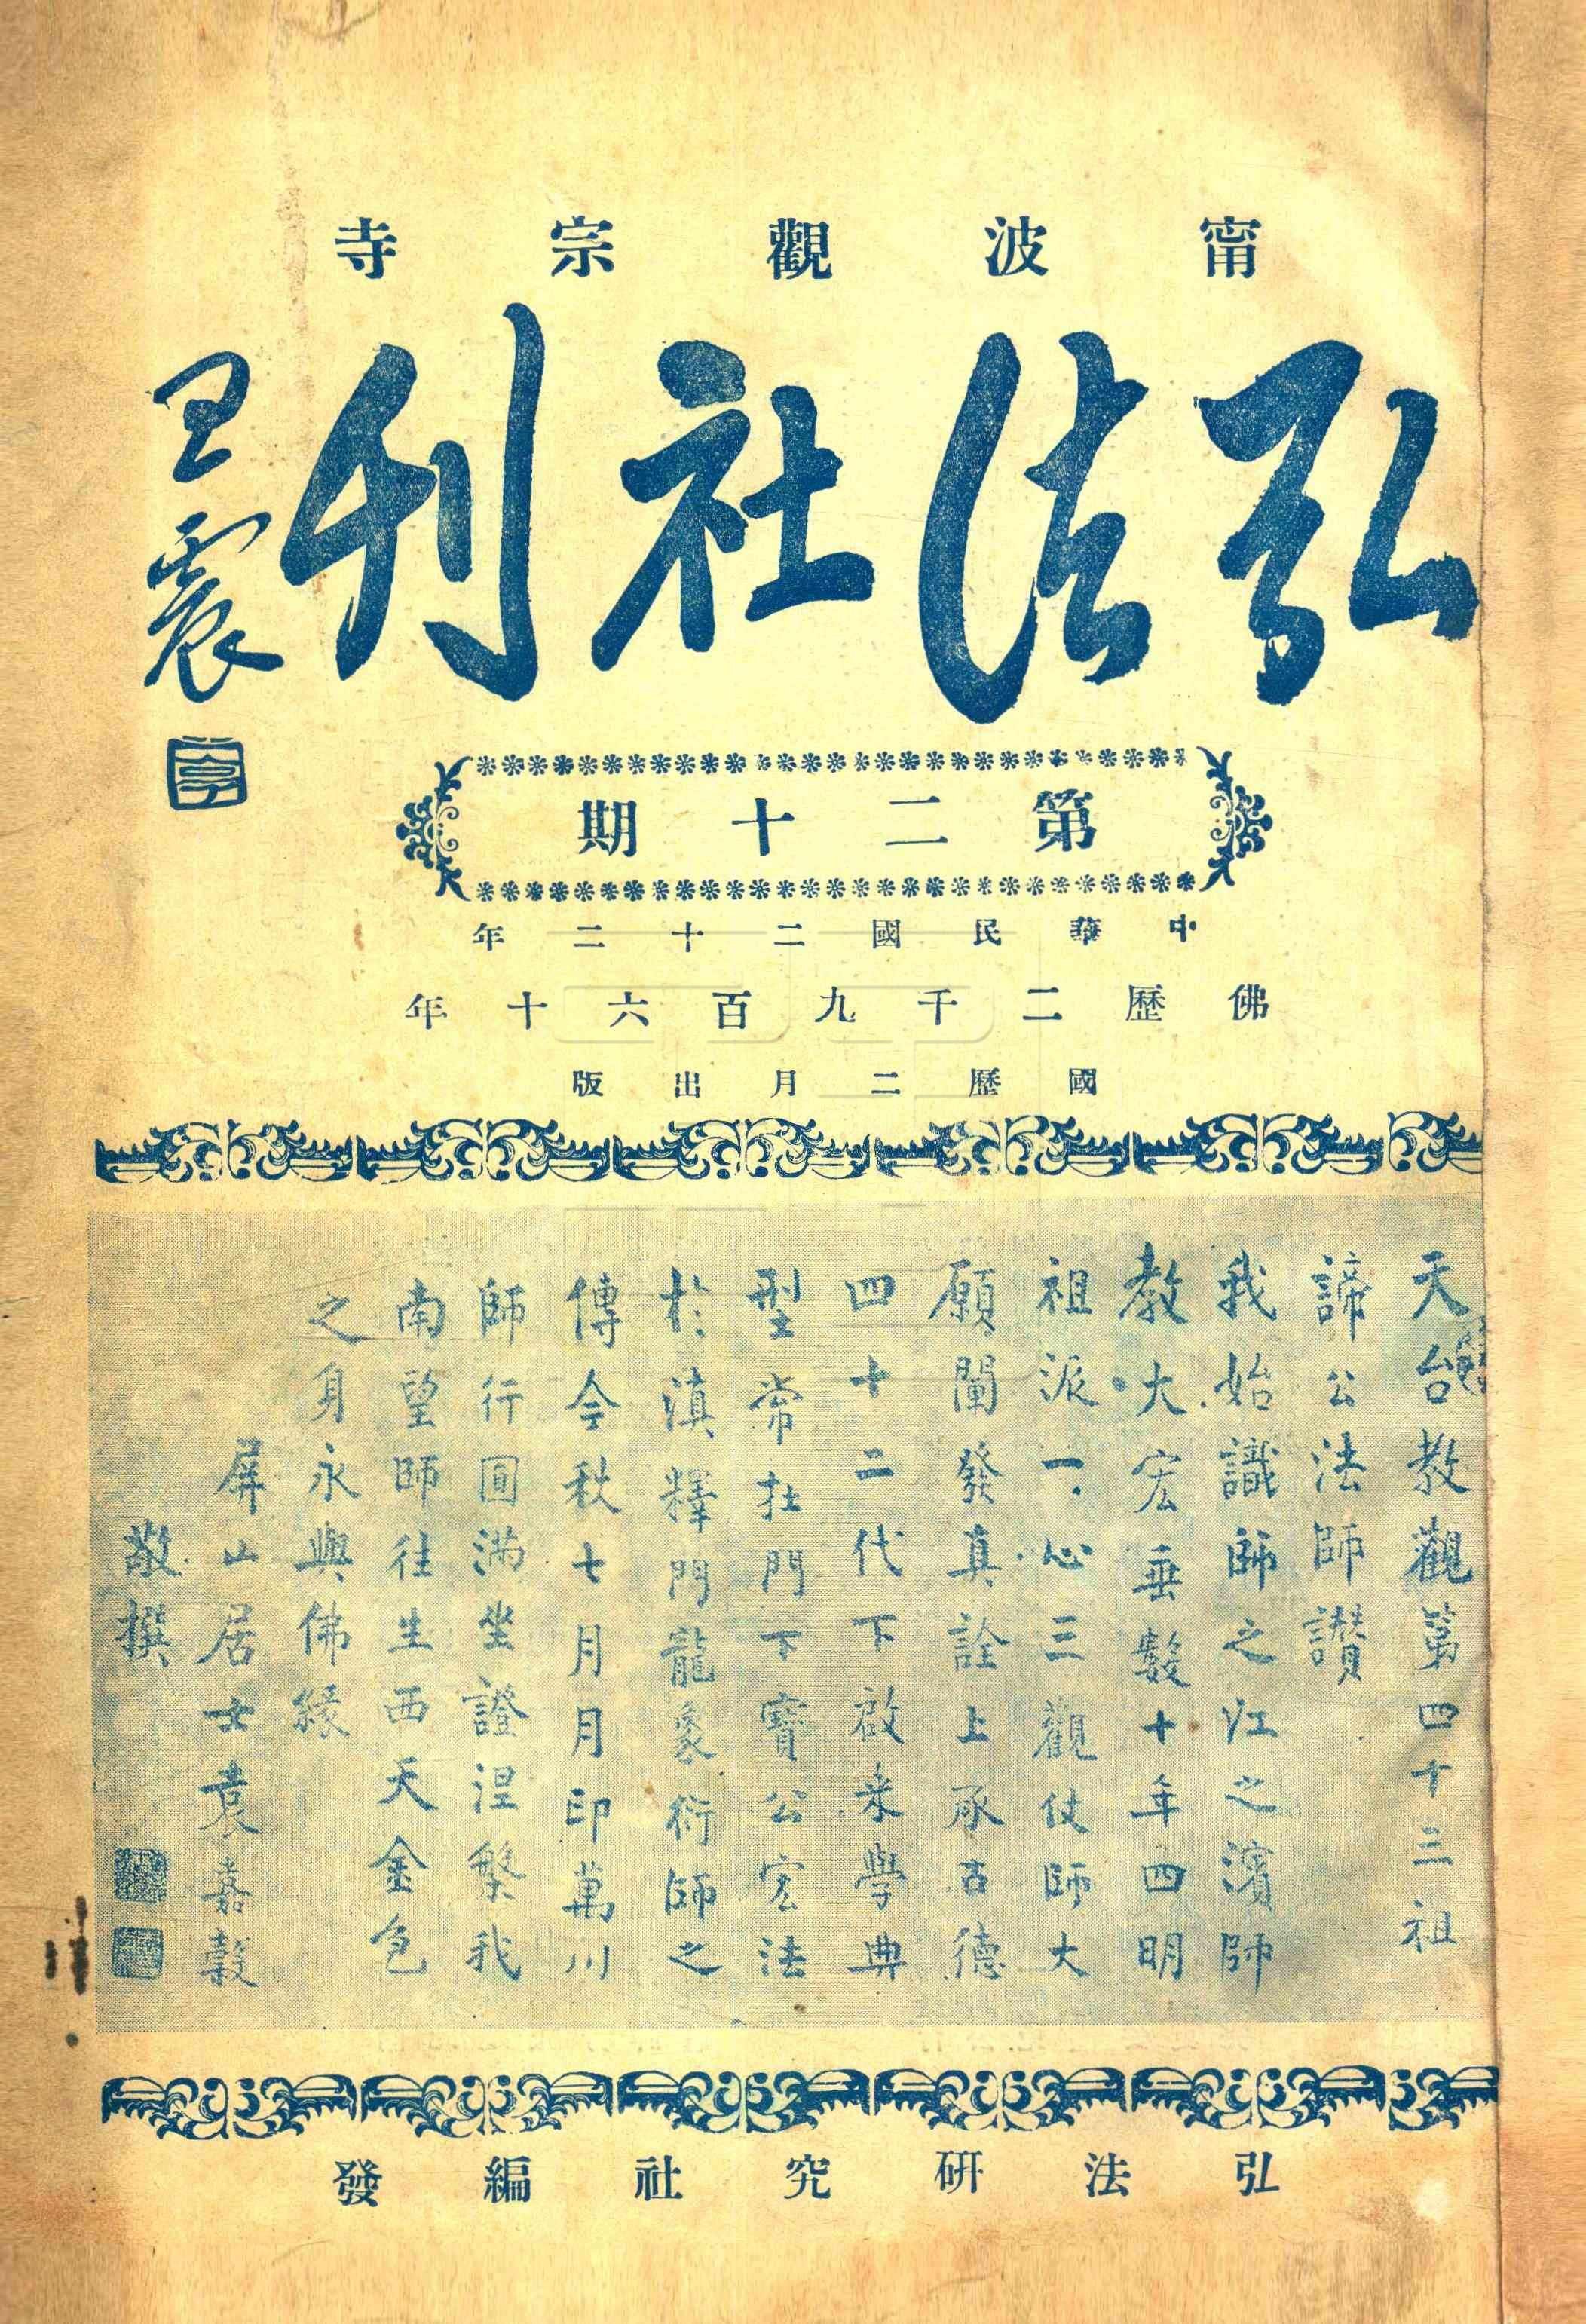 甯波觀宗寺
弘法社刊
王震
第二十期
中華民國二十二年
佛歷二千九百六十年
國歷二月出版
天台教觀第四十三祖
諦公法師讚
我始識師之江之濱師
教大宏垂數十年四明
祖派一心三觀仗師大
願闡發真詮上承古德
四十二代下啟来學典
型常在門下寶公宏法
於滇釋門龍象衍師之
傳今秋七月月印萬川
師行圓滿坐證涅槃我
南望師往生西天金色
之身永與佛緣
屏山居士袁嘉穀
敬撰
弘法研究社編發